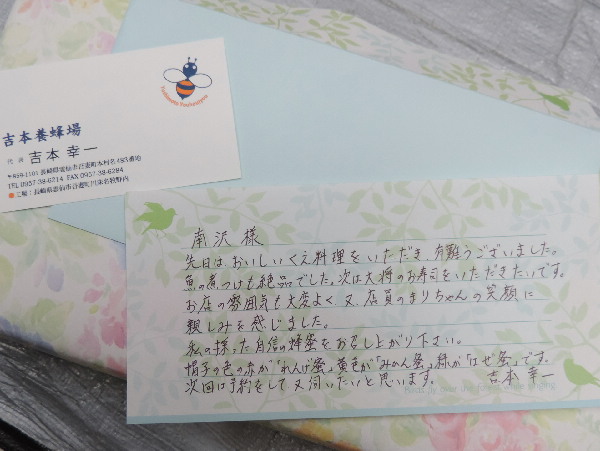 吉本養蜂場
代表 吉本 幸一
〒859-1101 長崎県雲仙市吾妻町
TEL 0957-38-6214 FAX 0957-38-6284
南沢 様
先日は、おいしいくえ料理をいただき、有難うございました。
魚の煮つけも絶品でした。次は大将のお寿司をいただきたいです。
お店の雰囲気も大変よく、又、店員のまりちゃんの笑顔に
親しみを感じました。
私の採った自信の蜂蜜をお召し上がり下さい。
帽子の色の赤が「れんげ蜜」、黄色が「みかん蜜」、緑が「はぜ蜜」です。
次回は予約をして又伺いたいと思います。 吉本 幸一